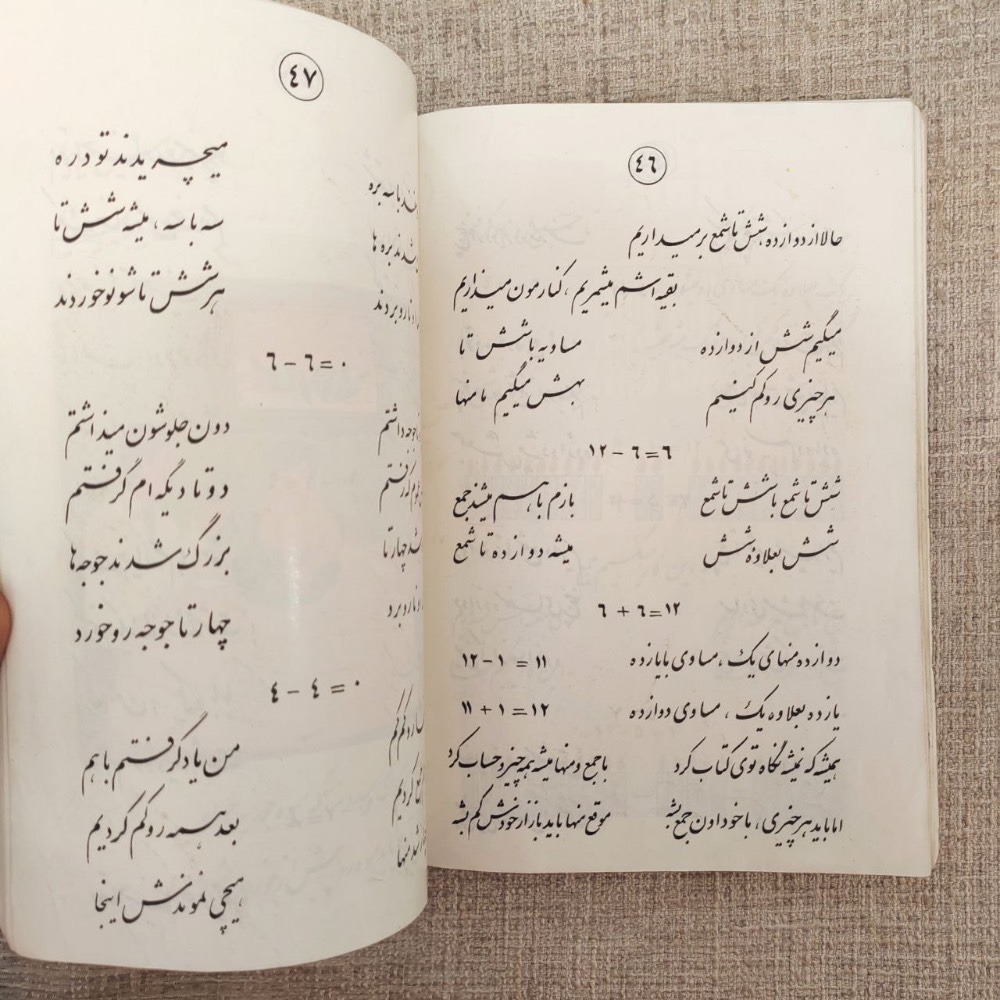 ٤٦
حالا از دوازده، شش تا شمع برمیداریم
بقیه اشم میشمریم، کنارمون میذاریم
میگیم شش از دوازده مساویه با شش تا
هر چیزی رو کم کنیم بهش میگیم ما منها
١٢ - ٦ = ٦
شش تا شمع با شش تا شمع بازم با هم میشند جمع
شش بعلاوه شش میشه دوازده تا شمع
٦ + ٦ = ١٢
دوازده منهای یک، مساوی با یازده ١٢ - ١ = ١١
یازده بعلاوه یک، مساوی دوازده ١١ + ١ = ١٢
همیشه که نمیشه نگاه توی کتاب کرد با جمع و منها میشه همه چیز و حساب کرد
اما باید هر چیزی، با خود اون جمع بشه موقع منها باید باز از خودش کم بشه
٤٧
با سه بره میچریدند تو دره
شدند بره ها سه با سه، میشه شش تا
بردند هر شش تا شونو خوردند
٦ - ٦ = ٠
جوجه داشتم دون جلوشون میذاشتم
گرفتم دو تا دیگه ام گرفتم
چهار تا بزرگ شدند جوجه ها
رو برد چهار تا جوجه رو خورد
٤ - ٤ = ٠
رو کم کم من یاد گرفتم با هم
کردیم بعد همه رو کم کردیم
منها هیچی نموندش اینجا